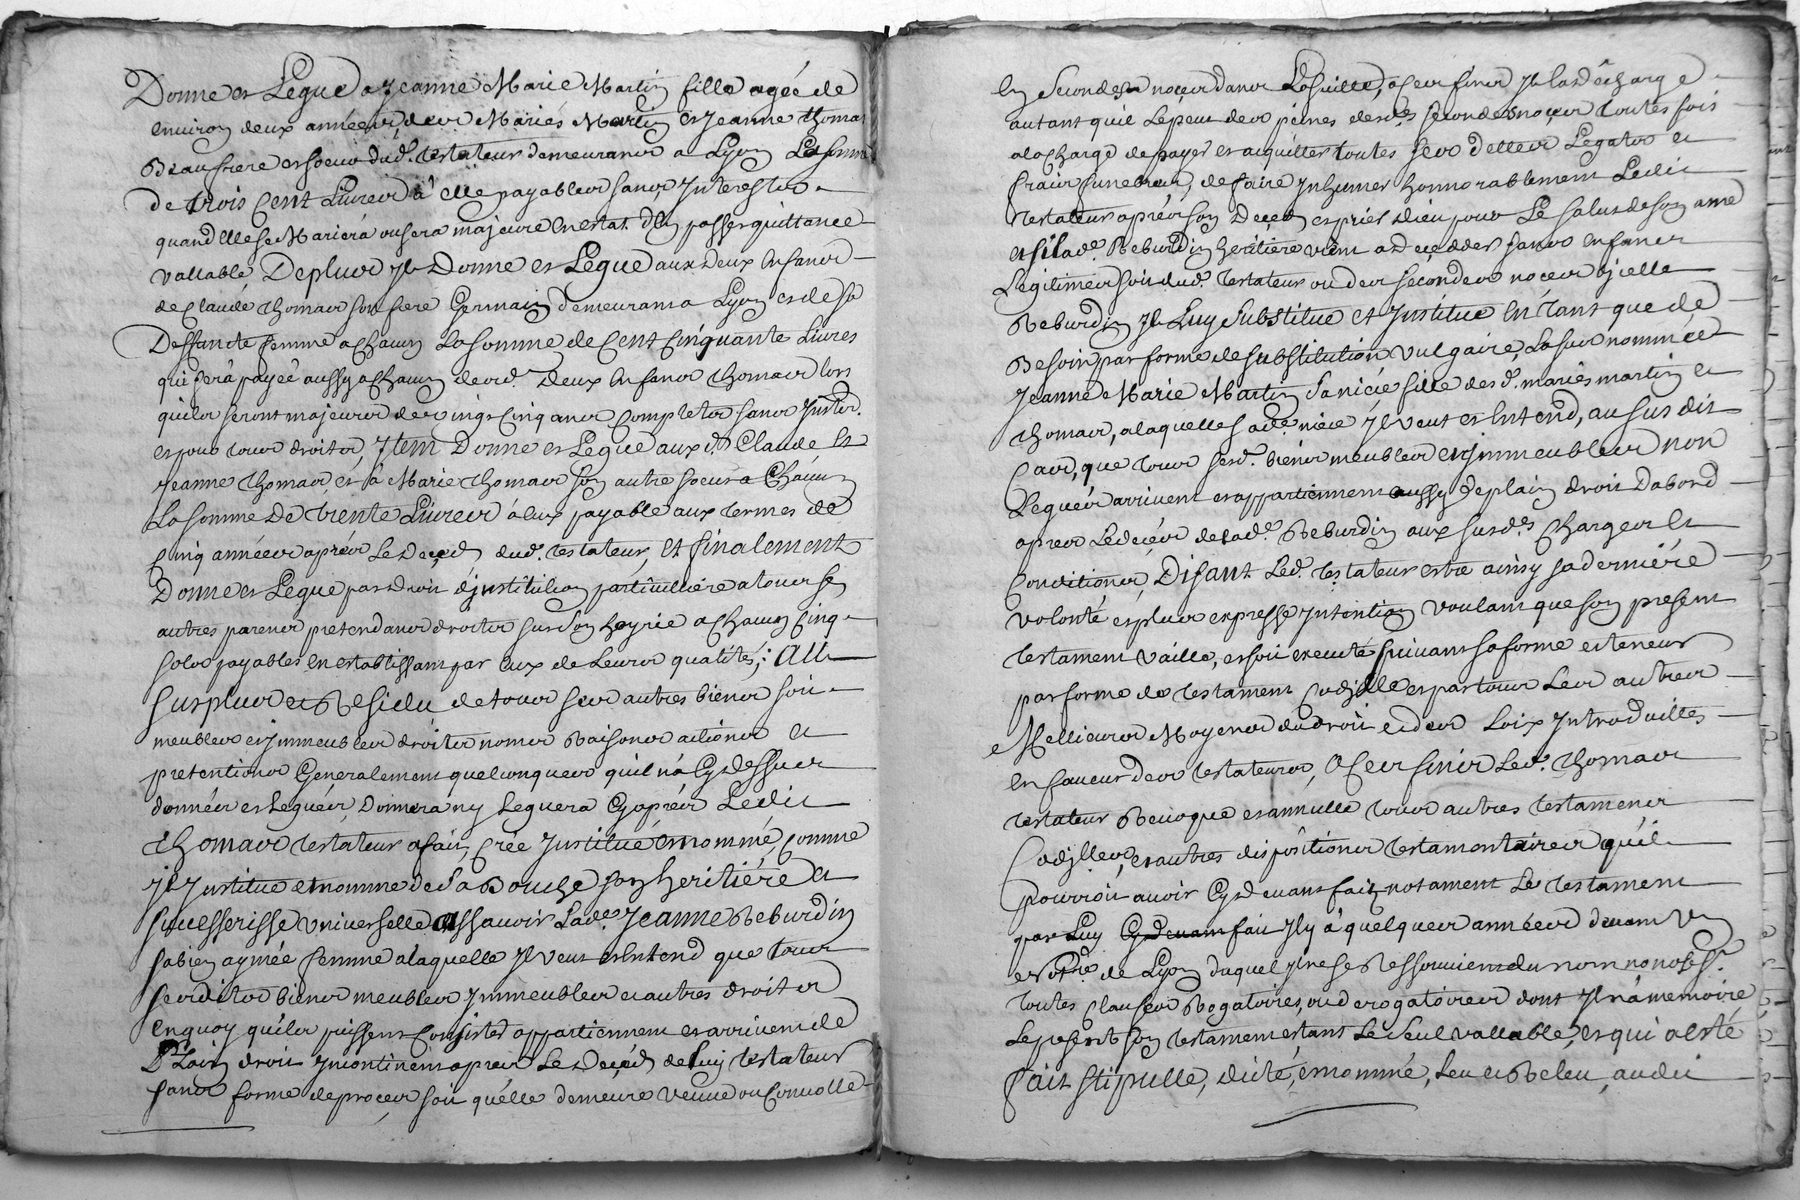 Donne et Legue a Jeanne Marie Martin fille agée de
environ deux années, des Mariés Martin et Jeanne thomas
Beaufrere et soeur dud. testateur demeurans a Lyon La somme
de trois Cent Livres à elle payables sans Interestz
quand Elle se Mariera ou sera majeure En estat d'En passer quittance
vallable, De plus Il Donne et Legue aux deux Enfans
de Claude thomas son frere Germain demeurans a Lyon et de sa
Deffuncte femme a chacun La somme de Cent Cinquante Livres
qui sera payeé aussy a chacun desd. Deux Enfans thomas lors
quilz seront majeurs de vingt Cinq ans Completz sans Intestz.
et pour tous droitz, Item Donne et Legue aux d. Claude Et
Jeanne thomas et à Marie thomas son autre soeur a Chacun
La somme De trente Livres à Eux payable aux termes de
Cinq années aprés Le Decéd dud. testateur, Et finalement
Donne et Legue par Droit d'Institution particulliére a tous ses
autres parens pretendans droitz sur son hoyrie a chacun Cinq
solz payables En establissant par Eux de Leurs qualités; Au
surplus et Residu de tous ses autres biens soit
meubles et Immeubles droitz noms Raisons actions et
pretentions Generalement quelconques quil n'a Cy dessus
données et Leguées, Donnera ny Leguera Cy aprés Ledit
thomas testateur a fait, Crée Institué et nommé, comme
Il Institue et nomme de sa Bouche son heritiére et
successerisse universelle assavoir Lade. Jeanne Reburdin
sa bien aymée femme a laquelle Il veut et Entend que tous
sesditz biens meubles Immeubles et autres droitz
en quoy quilz puissent Consister appartiennent et arrivent de
Plain droit Incontinent apres Le Decéd de luy testateur
sans forme de proces soit quélle demeure veuve ou Convolle
En secondes noces dans La suitte, a ces fins Il la décharge
autant quil Le peut des peines desd. secondes noces toutes fois
a la charge de payer et acquitter toutes ses dettes Legatz et
fraix funebres, de faire Inhumer honnorablement Ledit
testateur aprés son Decéd et prier Dieu pour Le Salut de son ame
et si Lade. Reburdin heritiére vient a Decedder sans enfans
Legitimes soit dud. testateur ou des secondes noces d'icelle
Reburdin Il Luy Substitue et Institue En tant que de
Besoin par forme de substitution vulgaire, La sus nommée
Jeanne Marie Martin sa niéce fille desd. mariés martin et
thomas, a laquelle sade. niéce Il veut et Entend, au susdit
Cas, que tous sesd. biens meubles et Immeubles non
Legués arrivent et appartiennent aussy de plain droit Dabord
apres Le decés de Lade. Reburdin aux susdes Charges Et
Conditions, Disant Led. testateur estre ainsy sa derniére
volonté et plus expresse Intention voulant que son present
testament vaille, et soit executé suivant sa forme et teneur
par forme de testament Codille et par tous Les autres
Mellieurs Moyens du droit et des Loix Introduittes
En faveur des testateurs, a ces fins Led. thomas
testateur Revoque et annulle tous autres testamens
Codilles, et autres dispôsitions testamentaires quil
pourroit avoir Cy devant fait, notament Le testament
par Luy Cy devant fait Il y à quelques années devant un
Notre. de Lyon duquel Il ne se Ressouvient du nom nonobst.
toutes Clauses Rogatoires, ou derogatoires dont Il n'a memoire
Le present son testament estant Le seul vallable, et qui a esté
fait stipulle, dicté, et nommé, Leu et Releu, audit